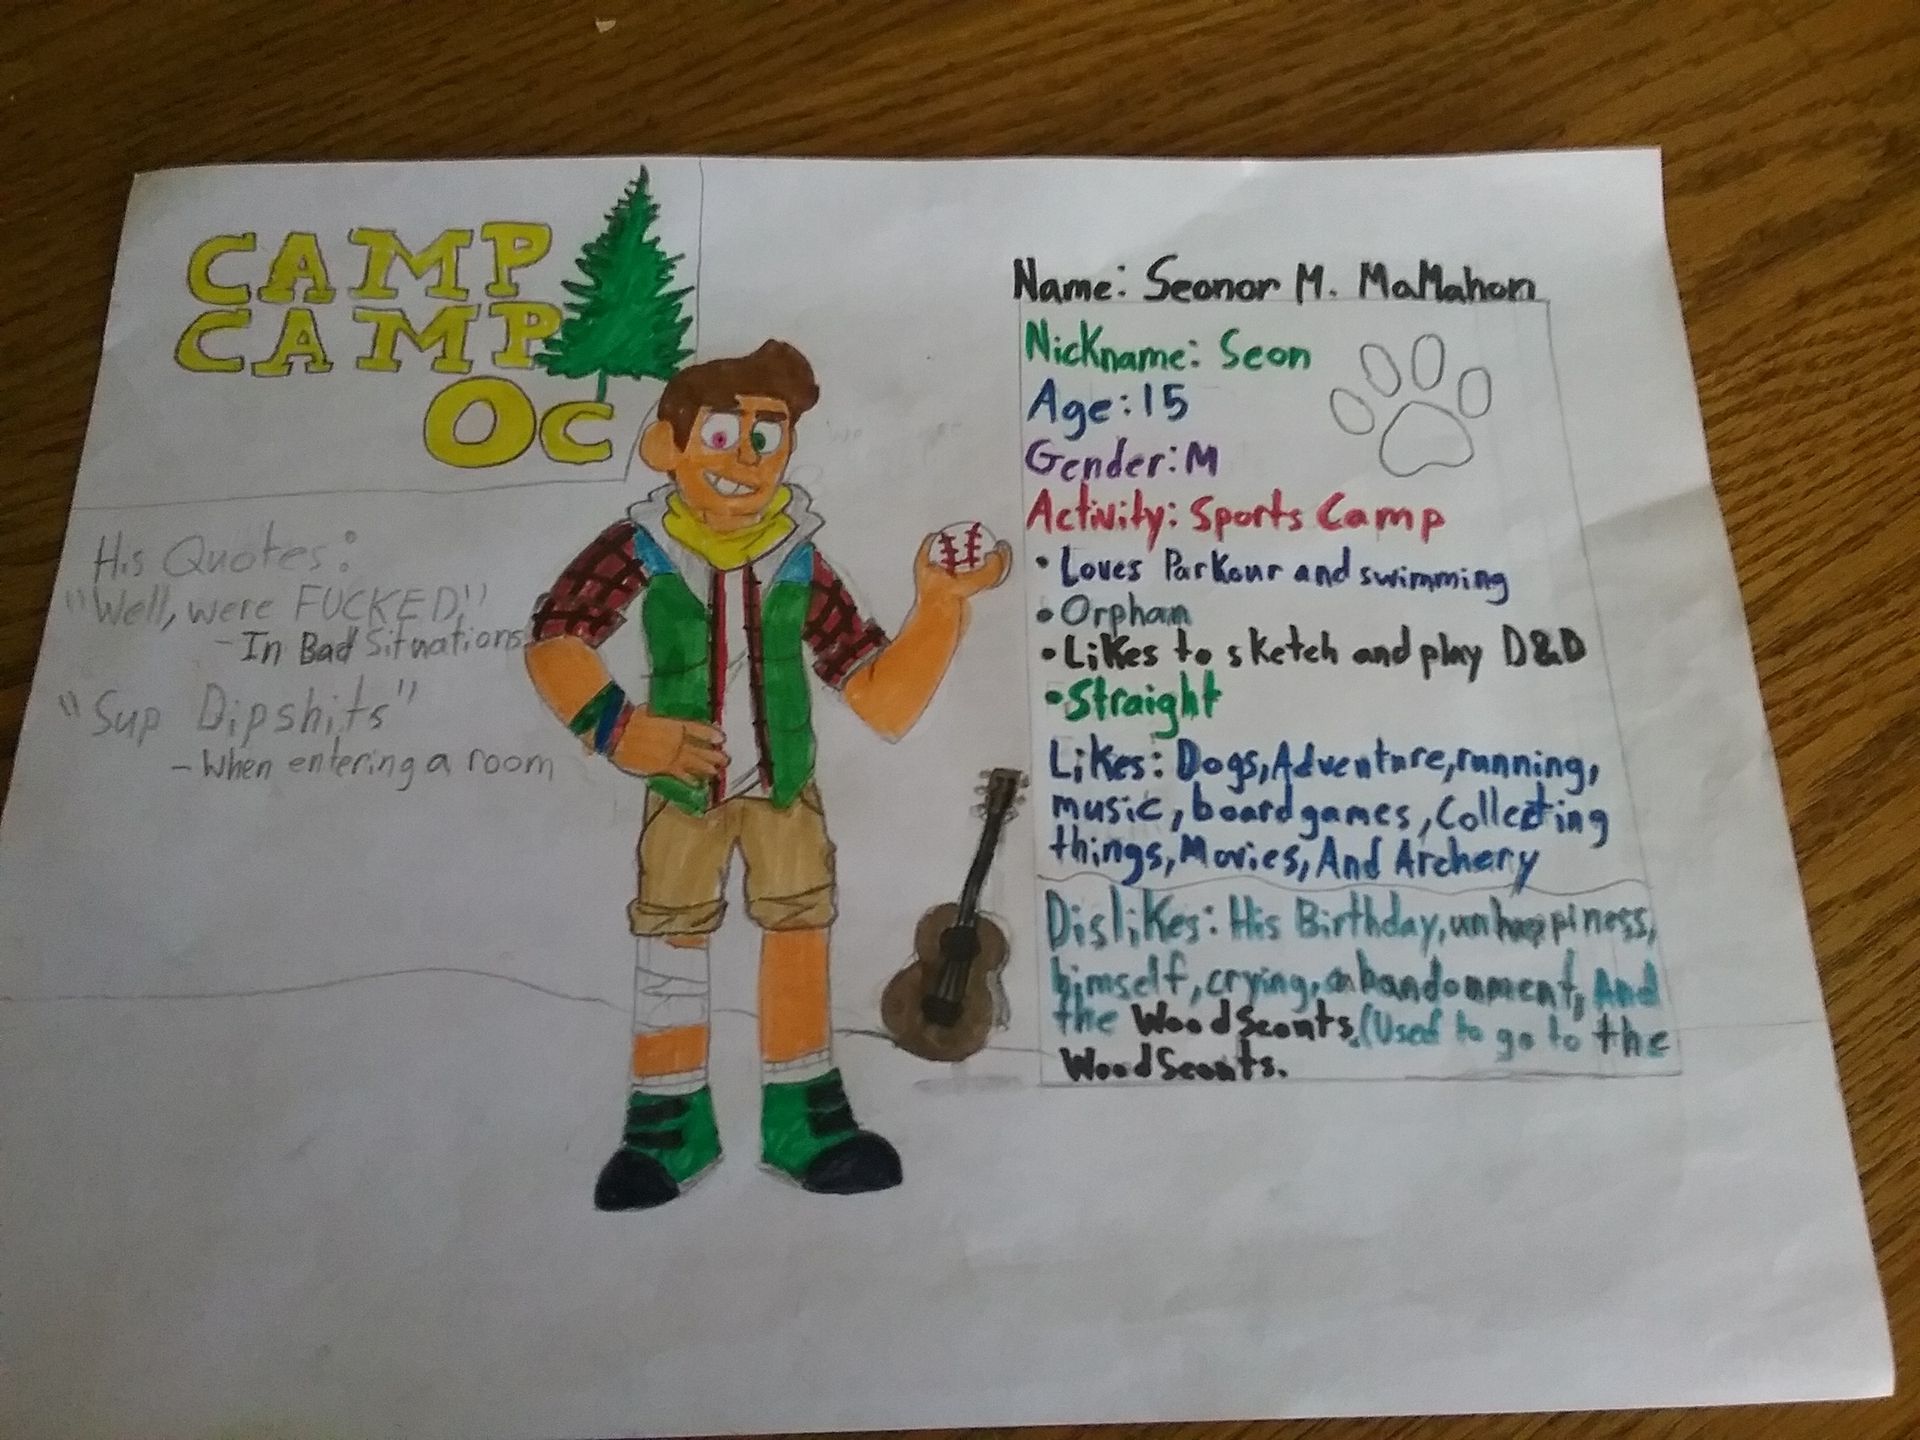 CAMP
CAMP
Oc
His Quotes:
"Well, were FUCKED,"
- In Bad Situations
"Sup Dipshits"
- When entering a room
Name: Seonor M. MaMahon
Nickname: Seon
Age: 15
Gender: M
Activity: Sports Camp
• Loves Parkour and swimming
• Orphan
• Likes to sketch and play D&D
• Straight
Likes: Dogs, Adventure, running,
music, board games, Collecting
things, Movies, And Archery
Dislikes: His Birthday, unhappiness,
himself, crying, abandonment, And
the Wood Scouts. (Used to go to the
Wood Scouts.